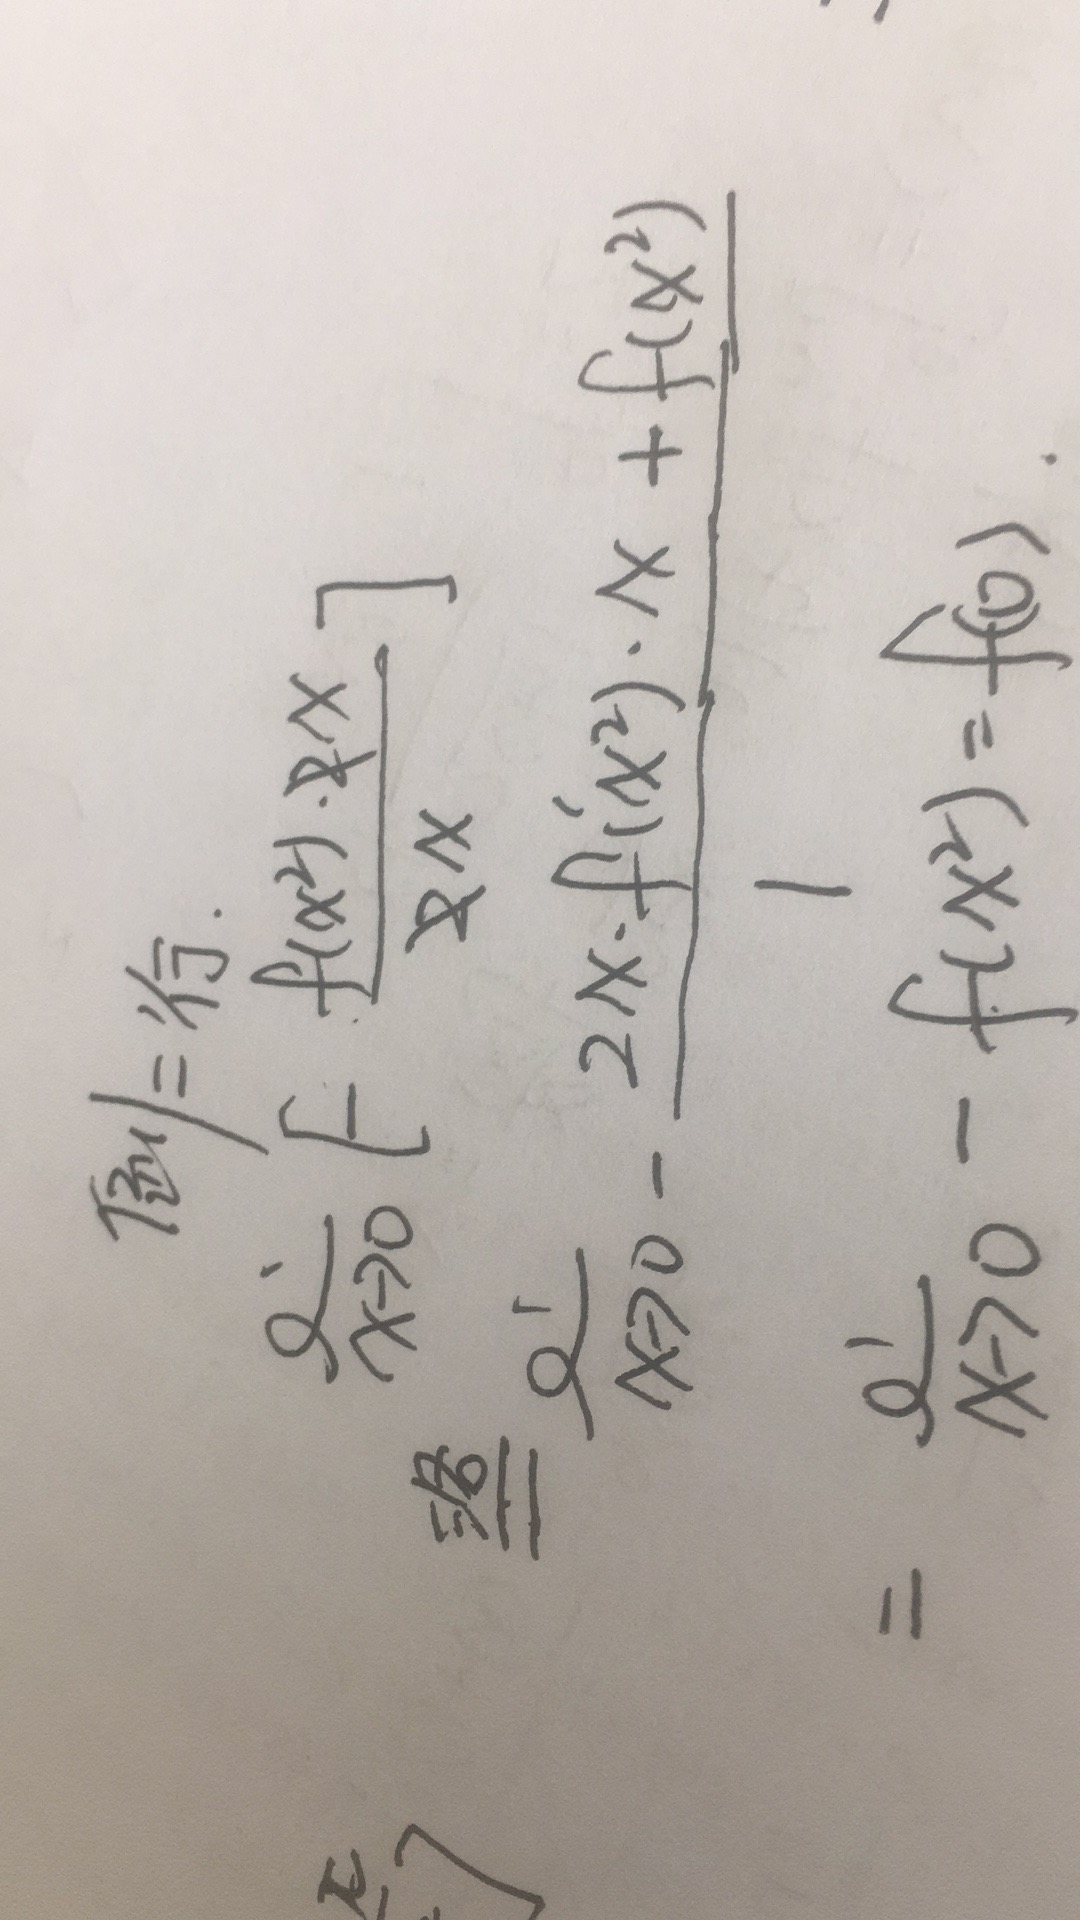 倒=行.
lim x→0 [ - f(x²)·2x / 2x ]
洛 lim x→0 - 2x·f'(x²)·x + f(x²) / 1
= lim x→0 - f(x²) = f(0).